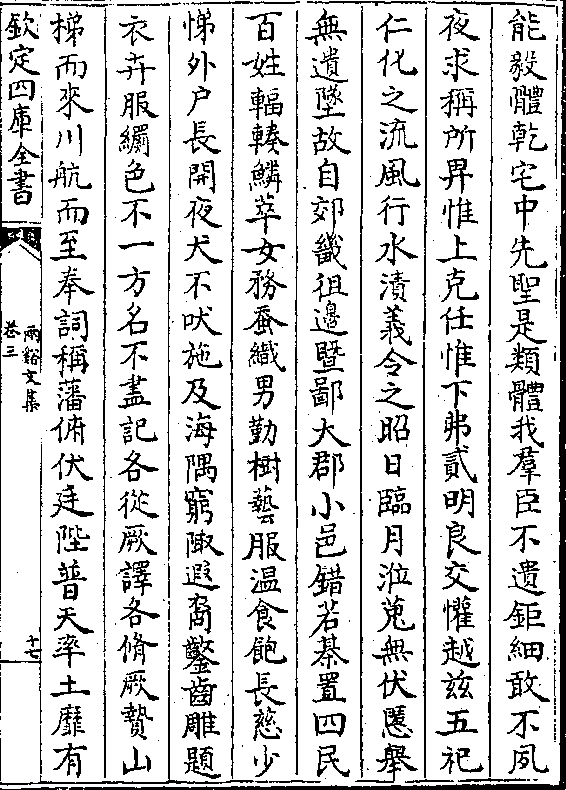 能毅體乾宅中先聖是類體我羣臣不遺鉅細敢不夙
夜求稱所畀惟上克任惟下弗貳明良交懽越兹五祀
仁化之流風行水漬義令之昭日臨月涖蒐無伏慝舉
無遺墜故自郊畿徂邊暨鄙大郡小邑錯若棊置四民
百姓輻輳鱗萃女務蚕織男勤樹藝服温食飽長慈少
悌外户長開夜犬不吠施及海隅窮陬遐裔鑿齒雕題
衣卉服纚色不一方名不盡記各從厥譯各脩厥贄山
梯而來川航而至奉詞稱藩俯伏廷陛普天率土靡有
欽定四庫全書
兩谿文集
卷三
十七